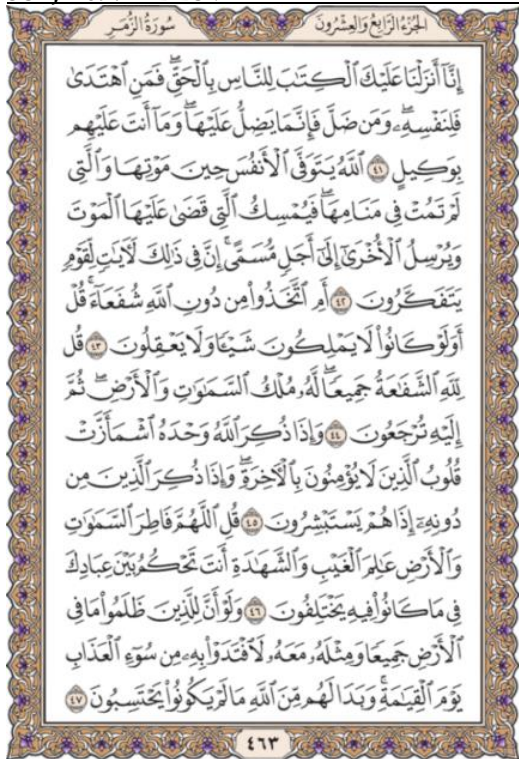 سُورَةُ الزُّمَرِ
الجُزْءُ الرَّابِعُ وَالعِشْرُونَ
إِنَّآ أَنزَلْنَا عَلَيْكَ ٱلْكِتَٰبَ لِلنَّاسِ بِٱلْحَقِّۖ فَمَنِ ٱهْتَدَىٰ
فَلِنَفْسِهِۦۖ وَمَن ضَلَّ فَإِنَّمَا يَضِلُّ عَلَيْهَاۖ وَمَآ أَنتَ عَلَيْهِم
بِوَكِيلٍ ٤١ ٱللَّهُ يَتَوَفَّى ٱلْأَنفُسَ حِينَ مَوْتِهَا وَٱلَّتِي
لَمْ تَمُتْ فِي مَنَامِهَاۖ فَيُمْسِكُ ٱلَّتِي قَضَىٰ عَلَيْهَا ٱلْمَوْتَ
وَيُرْسِلُ ٱلْأُخْرَىٰٓ إِلَىٰٓ أَجَلٍ مُّسَمًّىۚ إِنَّ فِي ذَٰلِكَ لَأٓيَٰتٍ لِّقَوْمٍ
يَتَفَكَّرُونَ ٤٢ أَمِ ٱتَّخَذُوا۟ مِن دُونِ ٱللَّهِ شُفَعَآءَۚ قُلْ
أَوَلَوْ كَانُوا۟ لَا يَمْلِكُونَ شَيْـًٔا وَلَا يَعْقِلُونَ ٤٣ قُل
لِّلَّهِ ٱلشَّفَٰعَةُ جَمِيعًاۖ لَّهُۥ مُلْكُ ٱلسَّمَٰوَٰتِ وَٱلْأَرْضِۖ ثُمَّ
إِلَيْهِ تُرْجَعُونَ ٤٤ وَإِذَا ذُكِرَ ٱللَّهُ وَحْدَهُ ٱشْمَأَزَّتْ
قُلُوبُ ٱلَّذِينَ لَا يُؤْمِنُونَ بِٱلْأٓخِرَةِۖ وَإِذَا ذُكِرَ ٱلَّذِينَ مِن
دُونِهِۦٓ إِذَا هُمْ يَسْتَبْشِرُونَ ٤٥ قُلِ ٱللَّهُمَّ فَاطِرَ ٱلسَّمَٰوَٰتِ
وَٱلْأَرْضِ عَٰلِمَ ٱلْغَيْبِ وَٱلشَّهَٰدَةِ أَنتَ تَحْكُمُ بَيْنَ عِبَادِكَ
فِي مَا كَانُوا۟ فِيهِ يَخْتَلِفُونَ ٤٦ وَلَوْ أَنَّ لِلَّذِينَ ظَلَمُوا۟ مَا فِي
ٱلْأَرْضِ جَمِيعًا وَمِثْلَهُۥ مَعَهُۥ لَٱفْتَدَوْا۟ بِهِۦ مِن سُوٓءِ ٱلْعَذَابِ
يَوْمَ ٱلْقِيَٰمَةِۚ وَبَدَا لَهُم مِّنَ ٱللَّهِ مَا لَمْ يَكُونُوا۟ يَحْتَسِبُونَ ٤٧
٤٦٣